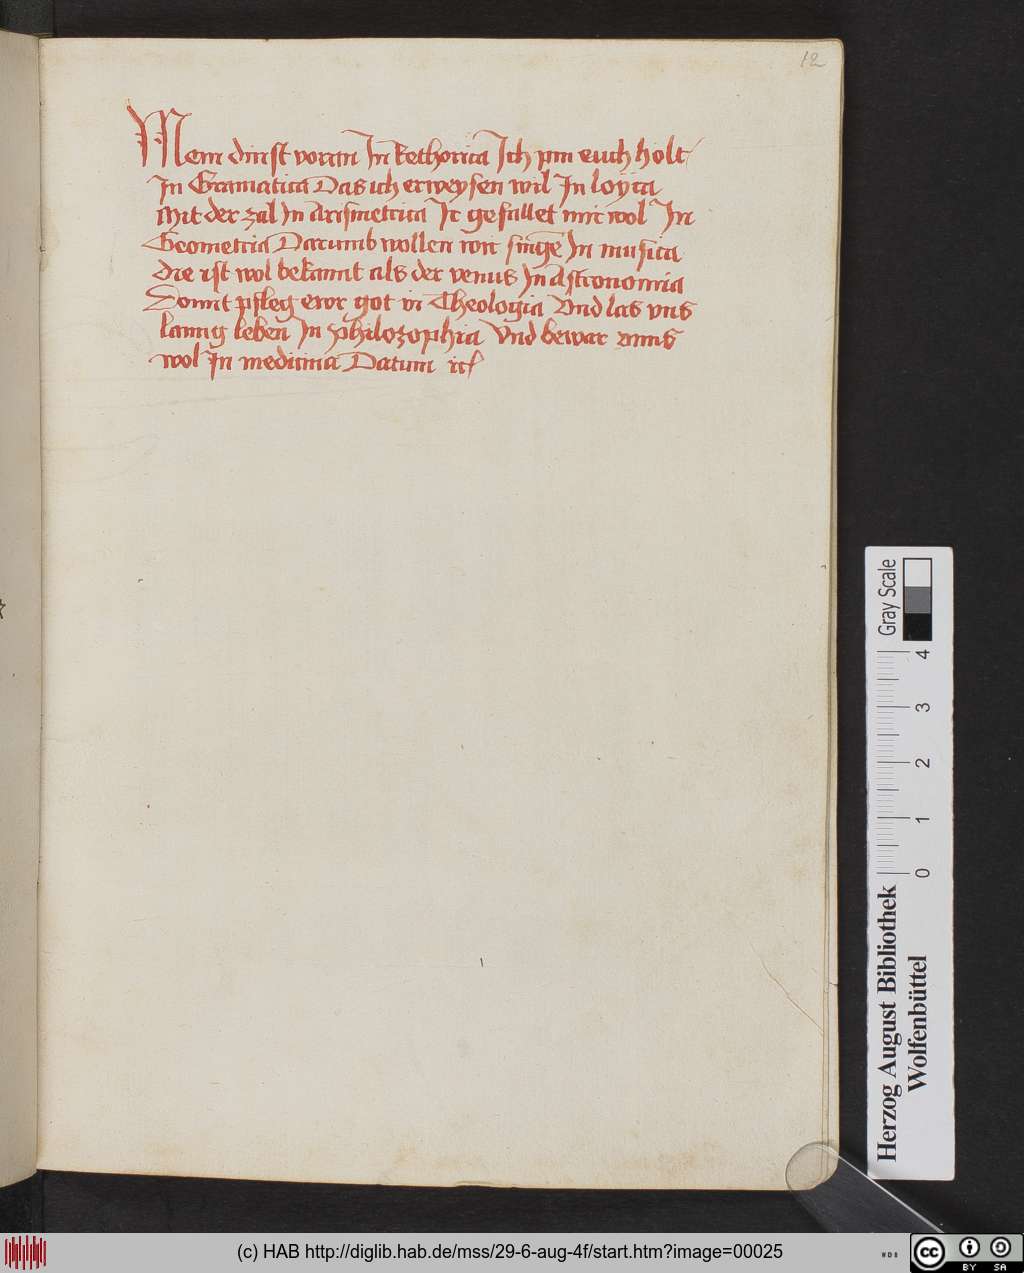 12
Mein dinst voran In Rethorica Ich pin euch holt
In Gramatica Das ich erweysen wil In loyca
Mit der zal In Arismetrica Ir gefallet mir wol In
Geometria Darumb wollen wir singē In musica
Die ist wol bekannt als der venus In Astronomia
Domit pfleg ewr got in Theologia Vnd las vns
lanng leben In philozophia Vnd bewar vnns
wol In medicina Datum ꝛc
Gray Scale
0 1 2 3 4
Herzog August Bibliothek
Wolfenbüttel
(c) HAB http://diglib.hab.de/mss/29-6-aug-4f/start.htm?image=00025
WDB
cc BY SA